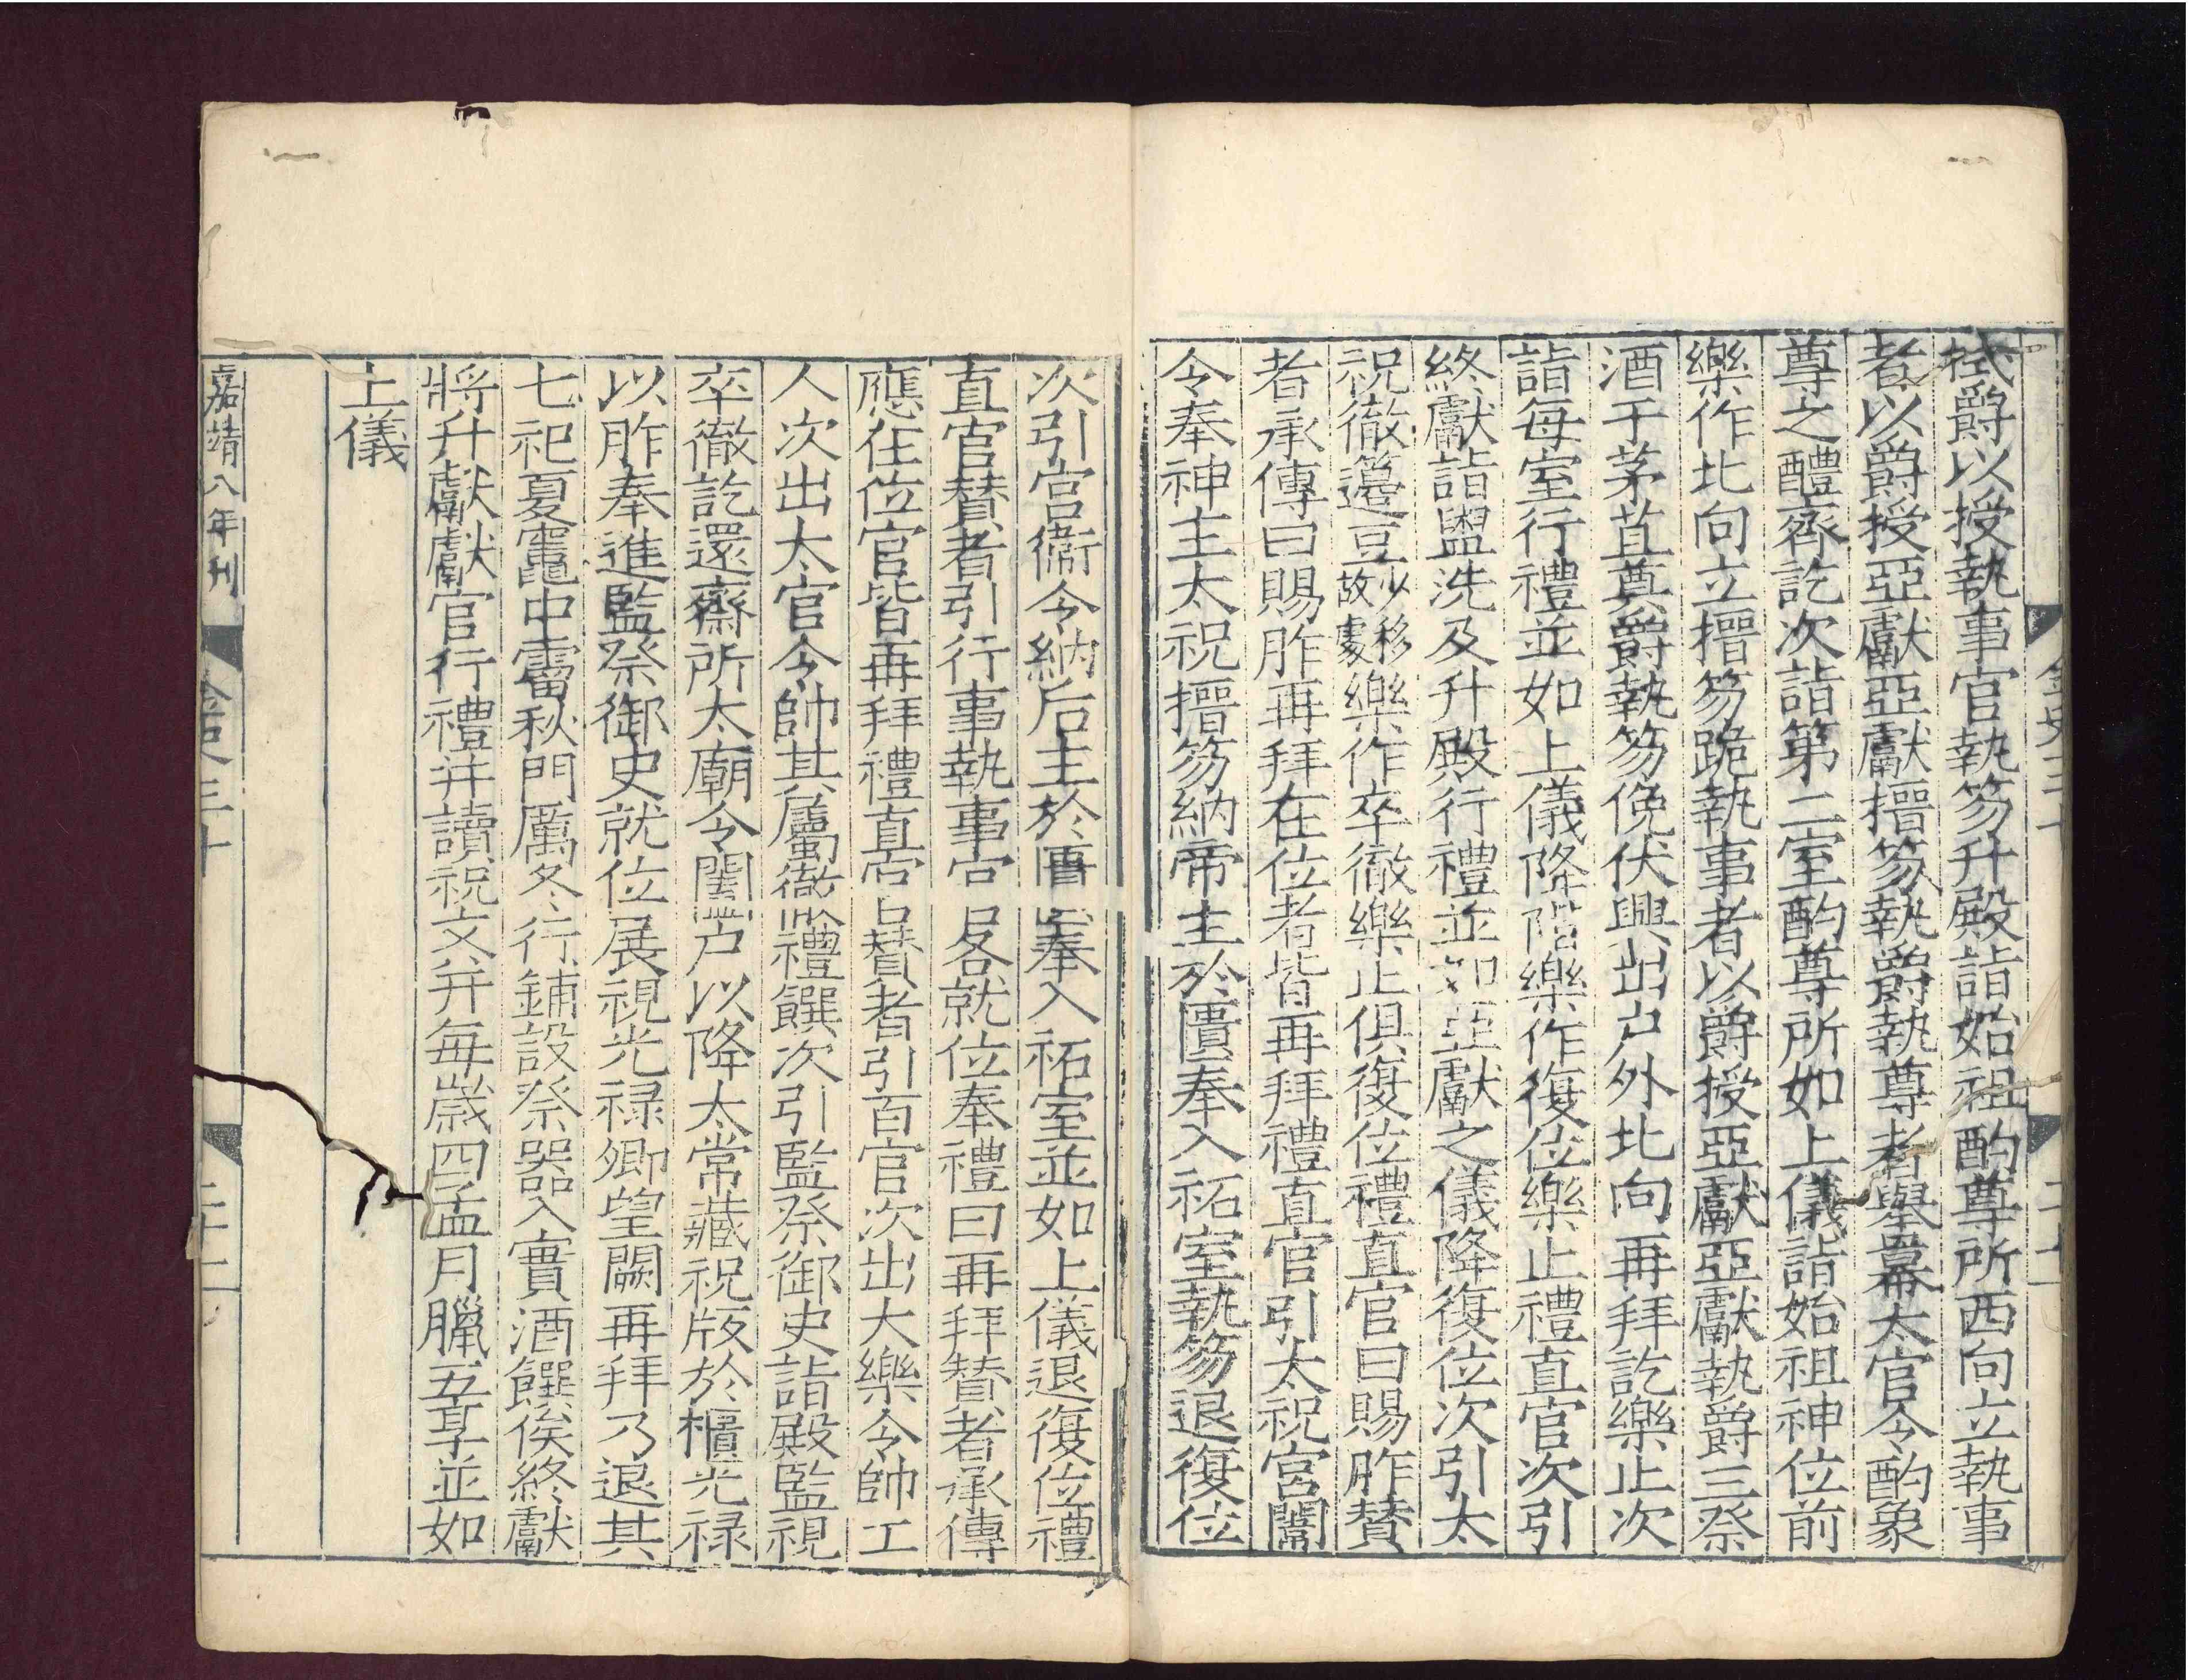 拭爵以授執事官執笏升殿詣始祖酌尊所西向立執事
者以爵授亞獻亞獻搢笏執爵執尊者舉羃太官令酌象
尊之醴齊訖次詣第二室酌尊所如上儀詣始祖神位前
樂作北向立搢笏跪執事者以爵授亞獻亞獻執爵三祭
酒于茅苴奠爵執笏俛伏興出戶外北向再拜訖樂止次
詣每室行禮並如上儀降階樂作復位樂止禮直官次引
終獻詣盥洗及升殿行禮並如亞獻之儀降復位次引太
祝徹籩豆少移故處樂作卒徹樂止俱復位禮直官曰賜胙贊
者承傳曰賜胙再拜在位者皆再拜禮直官引太祝宮闈
令奉神主太祝搢笏納帝主於匱奉入祏室執笏退復位
次引宮闈令納后主於匱奉入祏室並如上儀退復位禮
直官贊者引行事執事官各就位奉禮曰再拜贊者承傳
應在位官皆再拜禮直官贊者引百官次出大樂令帥工
人次出太官令帥其屬徹禮饌次引監祭御史詣殿監視
卒徹訖還齋所太廟令闔戶以降太常藏祝版於櫃光祿
以胙奉進監祭御史就位展視光祿卿望闕再拜乃退其
七祀夏竈中霤秋門厲冬行鋪設祭器入實酒饌俟終獻
將升獻獻官行禮并讀祝文并每歲四孟月臘五享並如
上儀
嘉靖八年刊
金史三十
二十二